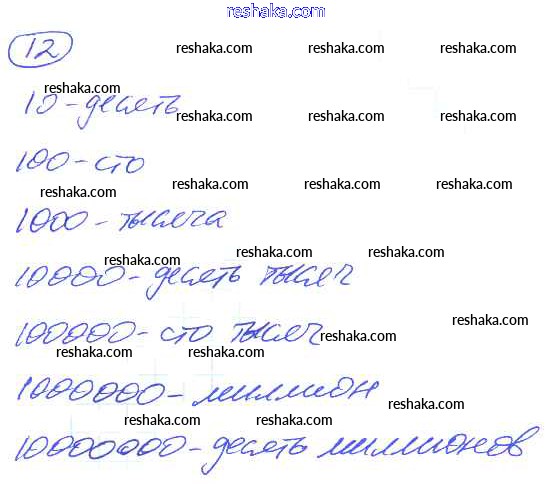 reshaka.com
12
reshaka.com reshaka.com reshaka.com
reshaka.com
10 - десять
reshaka.com reshaka.com reshaka.com
100 - сто
reshaka.com reshaka.com reshaka.com reshaka.com
1000 - тысяча
reshaka.com reshaka.com reshaka.com
10000 - десять тысяч
reshaka.com
100000 - сто тысяч
reshaka.com
reshaka.com reshaka.com
1000000 - миллион
reshaka.com
reshaka.com reshaka.com
10000000 - десять миллионов